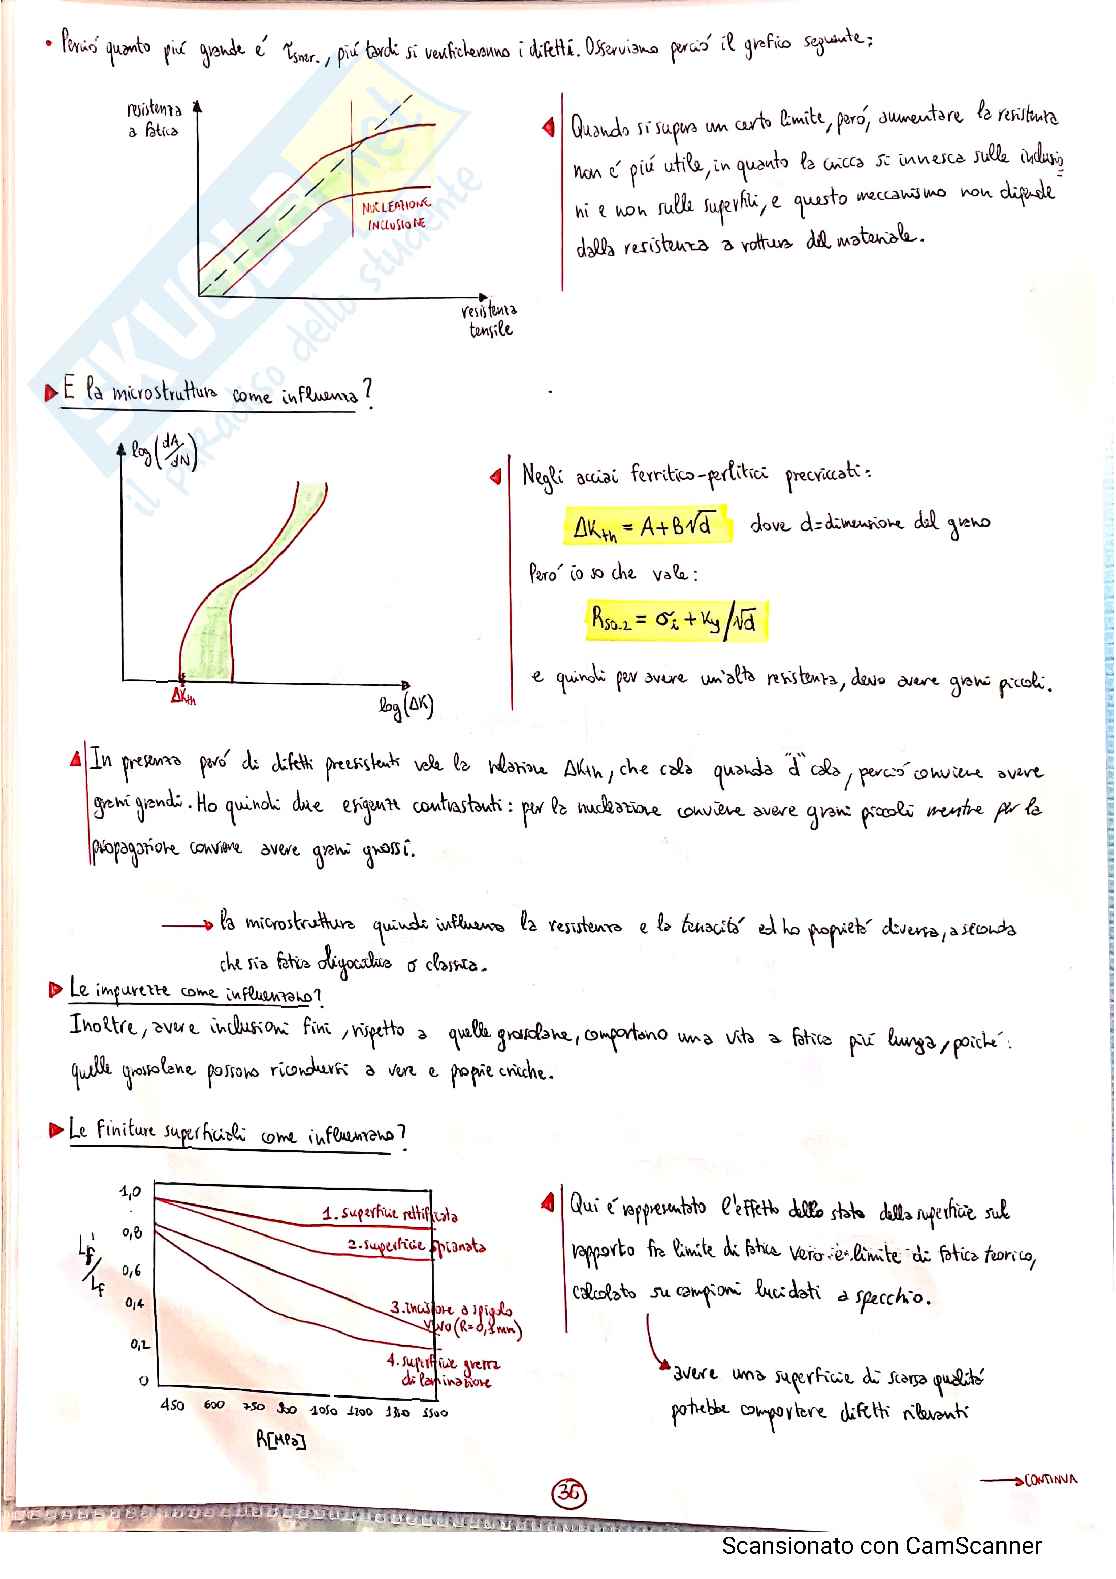 • Perció quanto piú grande é τsner., piú tardi si verificheranno i difetti. Osserviamo perció il grafico seguente:
resistenza
a fatica
NUCLEAZIONE
INCLUSIONE
resistenza
tensile
Quando si supera un certo limite, peró, aumentare la resistenza
non é piú utile, in quanto la cricca si innesca sulle inclusio
ni e non sulle superfici, e questo meccanismo non dipende
dalla resistenza a rottura del materiale.
SKUOLA.net
il paradiso dello studente
E la microstruttura come influenza?
log(dA/dN)
ΔKth
log(ΔK)
Negli acciai ferritico-perlitici precriccati:
ΔKth = A+B√d dove d=dimensione del grano
Peró io so che vale:
Rs0.2 = σi + Ky/√d
e quindi per avere un'alta resistenza, devo avere grani piccoli.
In presenza peró di difetti preesistenti vale la relazione ΔKth, che cala quando "d" cala, perció conviene avere
grani grandi. Ho quindi due esigenze contrastanti: per la nucleazione conviene avere grani piccoli mentre per la
propagazione conviene avere grani grossi.
→ la microstruttura quindi influenza la resistenza e la tenacitá ed ho proprietá diverse, a seconda
che sia fatica oligociclica o classica.
Le impurezze come influenzano?
Inoltre, avere inclusioni fini, rispetto a quelle grossolane, comportano una vita a fatica piú lunga, poiché:
quelle grossolane possono ricondursi a vere e proprie cricche.
Le finiture superficiali come influenzano?
1,0
0,8
0,6
0,4
0,2
0
Lf'/Lf
1. superficie rettificata
2. superficie spianata
3. incisione a spigolo
vivo (R=0,1mm)
4. superficie grezza
di laminazione
450 600 750 900 1050 1200 1350 1500
R[MPa]
Qui é rappresentato l'effetto dello stato della superficie sul
rapporto fra limite di fatica vero e limite di fatica teorico,
calcolato su campioni lucidati a specchio.
avere una superficie di scarsa qualitá
potrebbe comportare difetti rilevanti
→ CONTINUA
36
Scansionato con CamScanner